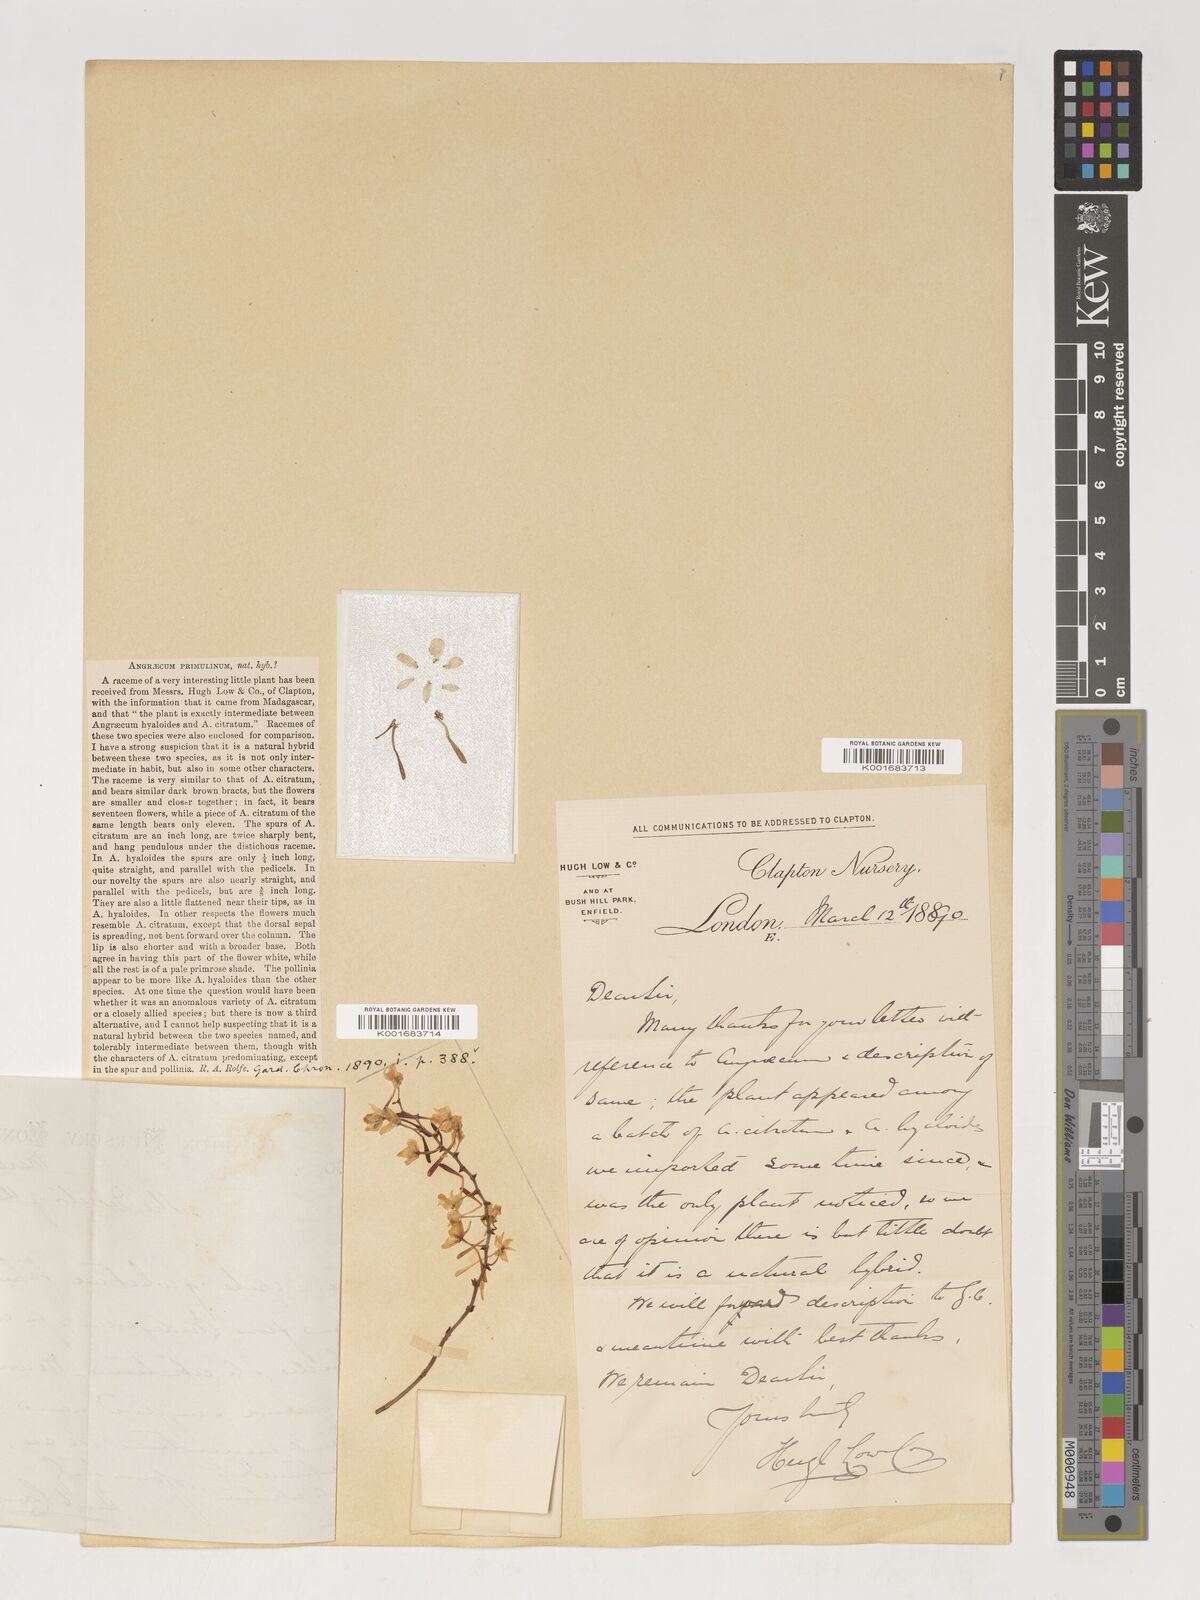 ANGRÆCUM PRIMULINUM, nat. hyb.!
A raceme of a very interesting little plant has been
received from Messrs. Hugh Low & Co., of Clapton,
with the information that it came from Madagascar,
and that "the plant is exactly intermediate between
Angræcum hyaloides and A. citratum." Racemes of
these two species were also enclosed for comparison.
I have a strong suspicion that it is a natural hybrid
between these two species, as it is not only inter-
mediate in habit, but also in some other characters.
The raceme is very similar to that of A. citratum,
and bears similar dark brown bracts, but the flowers
are smaller and closer together; in fact, it bears
seventeen flowers, while a piece of A. citratum of the
same length bears only eleven. The spurs of A.
citratum are an inch long, are twice sharply bent,
and hang pendulous under the distichous raceme.
In A. hyaloides the spurs are only inch long,
quite straight, and parallel with the pedicels. In
our novelty the spurs are also nearly straight, and
parallel with the pedicels, but are inch long.
They are also a little flattened near their tips, as in
A. hyaloides. In other respects the flowers much
resemble A. citratum, except that the dorsal sepal
is spreading, not bent forward over the column. The
lip is also shorter and with a broader base. Both
agree in having this part of the flower white, while
all the rest is of a pale primrose shade. The pollinia
appear to be more like A. hyaloides than the other
species. At one time the question would have been
whether it was an anomalous variety of A. citratum
or a closely allied species; but there is now a third
alternative, and I cannot help suspecting that it is a
natural hybrid between the two species named, and
tolerably intermediate between them, though with
the characters of A. citratum predominating, except
in the spur and pollinia. R. A. Rolfe. Gard. Chron. 1890, i. p. 388.
ROYAL BOTANIC GARDENS KEW
K001683714
ROYAL BOTANIC GARDENS KEW
K001683713
ALL COMMUNICATIONS TO BE ADDRESSED TO CLAPTON.
HUGH LOW & Co
AND AT
BUSH HILL PARK,
ENFIELD.
Clapton Nursery,
London, March 12th 1890
E.
Dear Sir,
Many thanks for your letter with
reference to Angræcum & description of
same; the plant appeared among
a batch of A. citratum & A. hyaloides
we imported some time since, &
was the only plant noticed, so we
are of opinion there is but little doubt
that it is a natural hybrid.
We will forward description to G.C.
& meantime with best thanks,
We remain Dear Sir,
Yours truly
Hugh Low & Co
Kew
Royal Botanic Gardens
copyright reserved
0 1 2 3 4 5 6 7 8 9 10
cm
inches
centimeters
Density
Don Williams
M000948